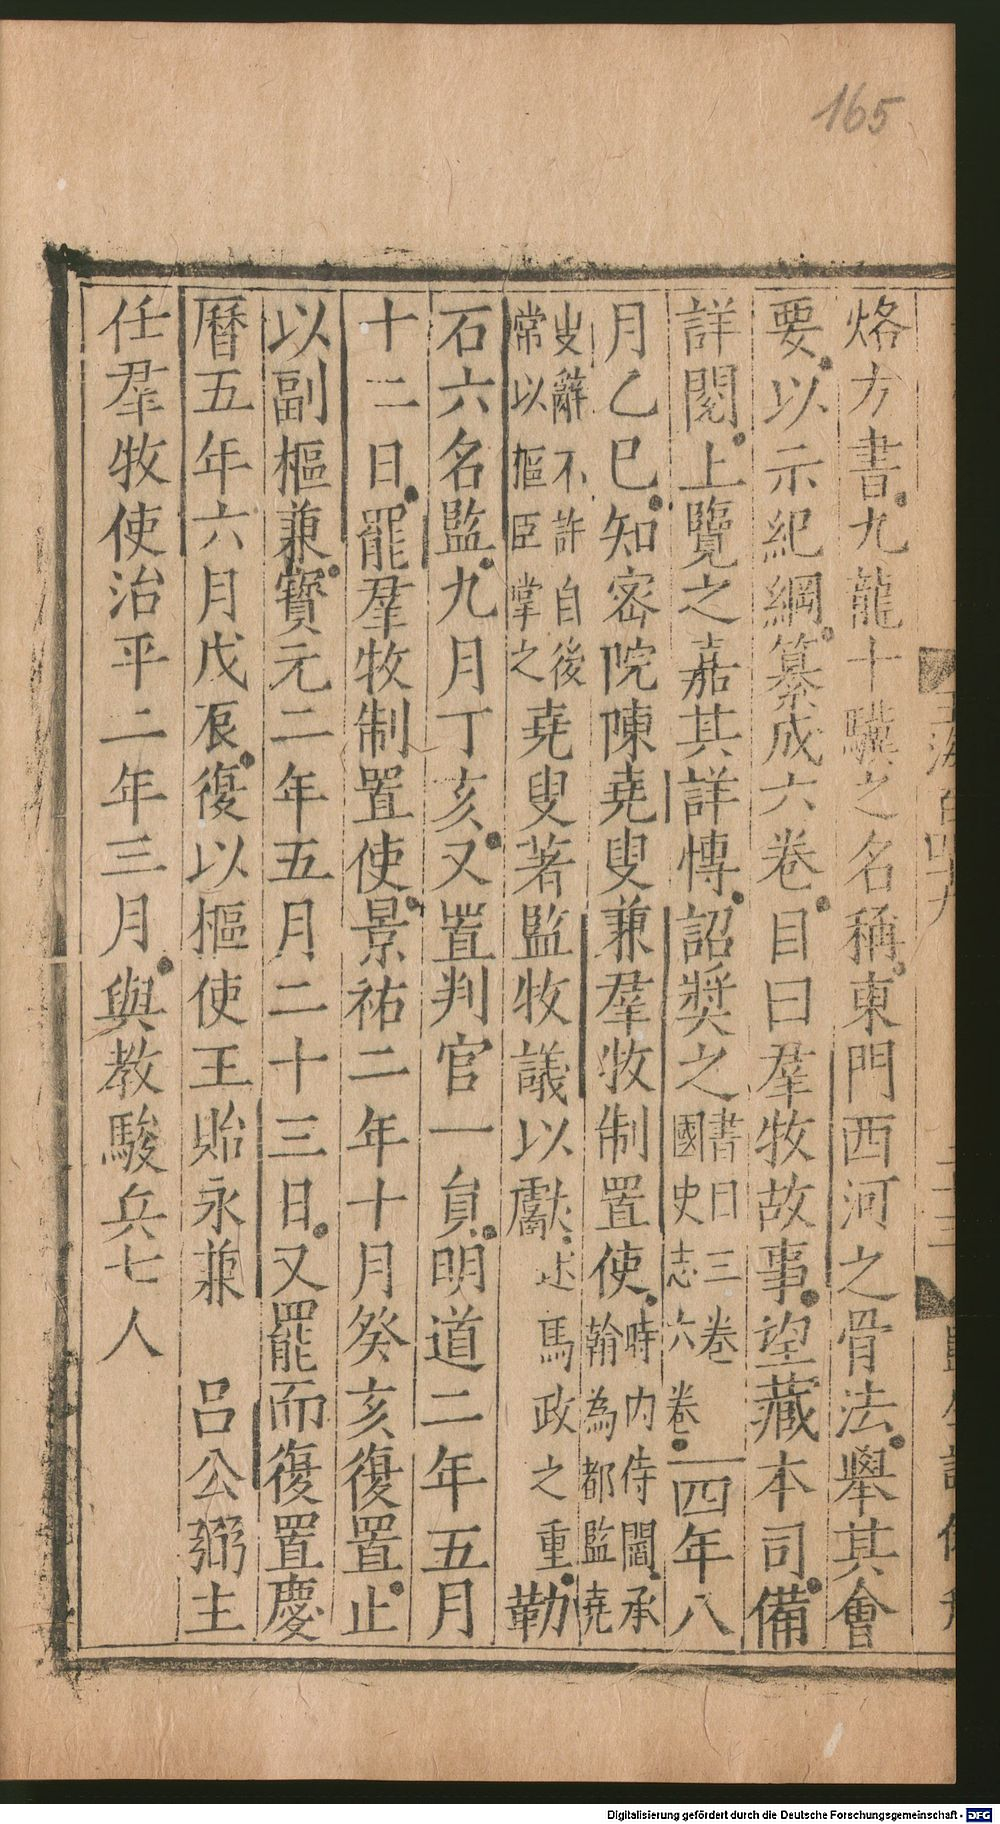 165
烙方書九龍十驥之名稱東門西河之骨法舉其會
要以示紀綱纂成六卷目曰羣牧故事望藏本司備
詳閱上覽之嘉其詳慱詔奨之書目三卷國史志六卷四年八
月乙巳知宻院陳堯叟兼羣牧制置使時内侍閻承翰為都監堯
叟辭不許自後常以樞臣掌之堯叟著監牧議以獻述馬政之重勒
石六名監九月丁亥又置判官一貟明道二年五月
十二日罷羣牧制置使景祐二年十月癸亥復置止
以副樞兼寳元二年五月二十三日又罷而復置慶
曆五年六月戊辰復以樞使王貽永兼 呂公弼主
任羣牧使治平二年三月與教駿兵七人
Digitalisierung gefördert durch die Deutsche Forschungsgemeinschaft - DFG